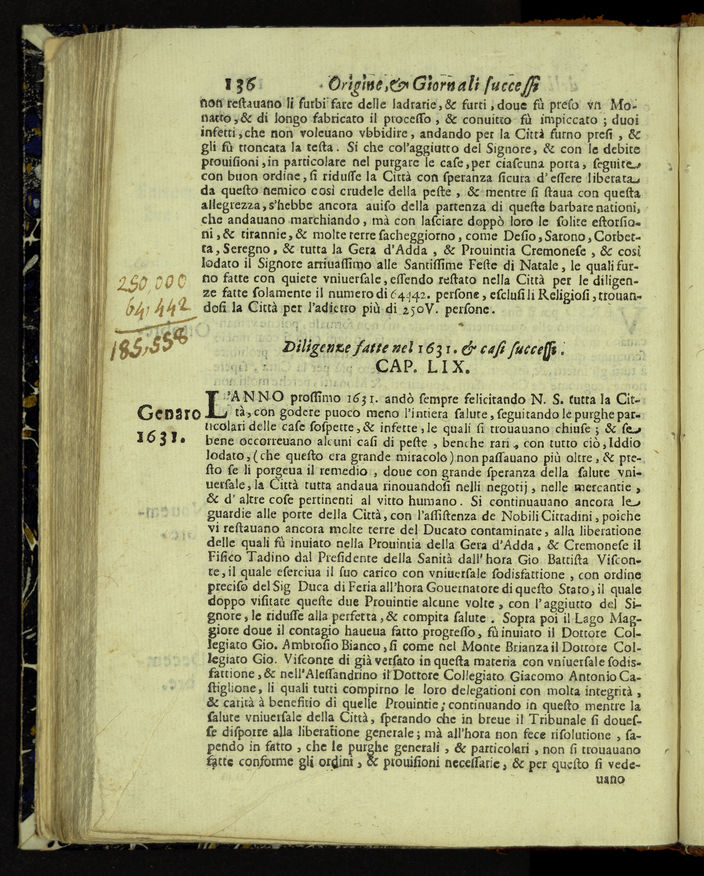 136 Origine, & Giornali ſucceſſi
non reſtauano li furbi fare delle ladrarie, & furti, doue fù preſo vn Mo-
natto, & di longo fabricato il proceſſo, & conuitto fù impiccato; duoi
infetti, che non voleuano vbbidire, andando per la Città furno preſi, &
gli fù troncata la teſta. Si che col'aggiutto del Signore, & con le debite
prouiſioni, in particolare nel purgare le caſe, per ciaſcuna porta, ſeguite
con buon ordine, ſi riduſſe la Città con ſperanza ſicura d'eſſere liberata
da queſto nemico così crudele della peſte, & mentre ſi ſtaua con queſta
allegrezza, s'hebbe ancora auiſo della partenza di queſte barbare nationi,
che andauano marchiando, mà con laſciare doppò loro le ſolite eſtorſio-
ni, & tirannie, & molte terre ſacheggiorno, come Deſio, Sarono, Corbet-
ta, Seregno, & tutta la Gera d'Adda, & Prouintia Cremoneſe, & così
lodato il Signore arriuaſſimo alle Santiſſime Feſte di Natale, le quali fur-
no fatte con quiete vniuerſale, eſſendo reſtato nella Città per le diligen-
ze fatte ſolamente il numero di 64442. perſone, eſcluſi li Religioſi, trouan-
doſi la Città per l'adietro più di 250V. perſone.
250,000
64,442
185,558
Diligenze fatte nel 1631. & caſi ſucceſſi.
CAP. LIX.
Genaro
1631.
L'ANNO proſſimo 1631. andò ſempre felicitando N. S. tutta la Cit-
tà, con godere puoco meno l'intiera ſalute, ſeguitando le purghe par-
ticolari delle caſe ſoſpette, & infette, le quali ſi trouauano chiuſe; & ſe
bene occorreuano alcuni caſi di peſte, benche rari, con tutto ciò, Iddio
lodato, (che queſto era grande miracolo) non paſſauano più oltre, & pre-
ſto ſe li porgeua il remedio, doue con grande ſperanza della ſalute vni-
uerſale, la Città tutta andaua rinouandoſi nelli negotij, nelle mercantie,
& d'altre coſe pertinenti al vitto humano. Si continuauano ancora le
guardie alle porte della Città, con l'aſſiſtenza de Nobili Cittadini, poiche
vi reſtauano ancora molte terre del Ducato contaminate, alla liberatione
delle quali fù inuiato nella Prouintia della Gera d'Adda, & Cremoneſe il
Fiſico Tadino dal Preſidente della Sanità dall'hora Gio Battiſta Viſcon-
te, il quale eſerciua il ſuo carico con vniuerſale ſodisfattione, con ordine
preciſo del Sig Duca di Feria all'hora Gouernatore di queſto Stato, il quale
doppo viſitate queſte due Prouintie alcune volte, con l'aggiutto del Si-
gnore, le riduſſe alla perfetta, & compita ſalute. Sopra poi il Lago Mag-
giore doue il contagio haueua fatto progreſſo, fù inuiato il Dottore Col-
legiato Gio. Ambroſio Bianco, ſi come nel Monte Brianza il Dottore Col-
legiato Gio. Viſconte di già verſato in queſta materia con vniuerſale ſodis-
fattione, & nell'Aleſſandrino il Dottore Collegiato Giacomo Antonio Ca-
ſtiglione, li quali tutti compirno le loro delegationi con molta integrità,
& carità à benefitio di quelle Prouintie; continuando in queſto mentre la
ſalute vniuerſale della Città, ſperando che in breue il Tribunale ſi doueſ-
ſe diſporre alla liberatione generale; mà all'hora non fece riſolutione, ſa-
pendo in fatto, che le purghe generali, & particolari, non ſi trouauano
fatte conforme gli ordini, & prouiſioni neceſſarie, & per queſto ſi vede-
uano